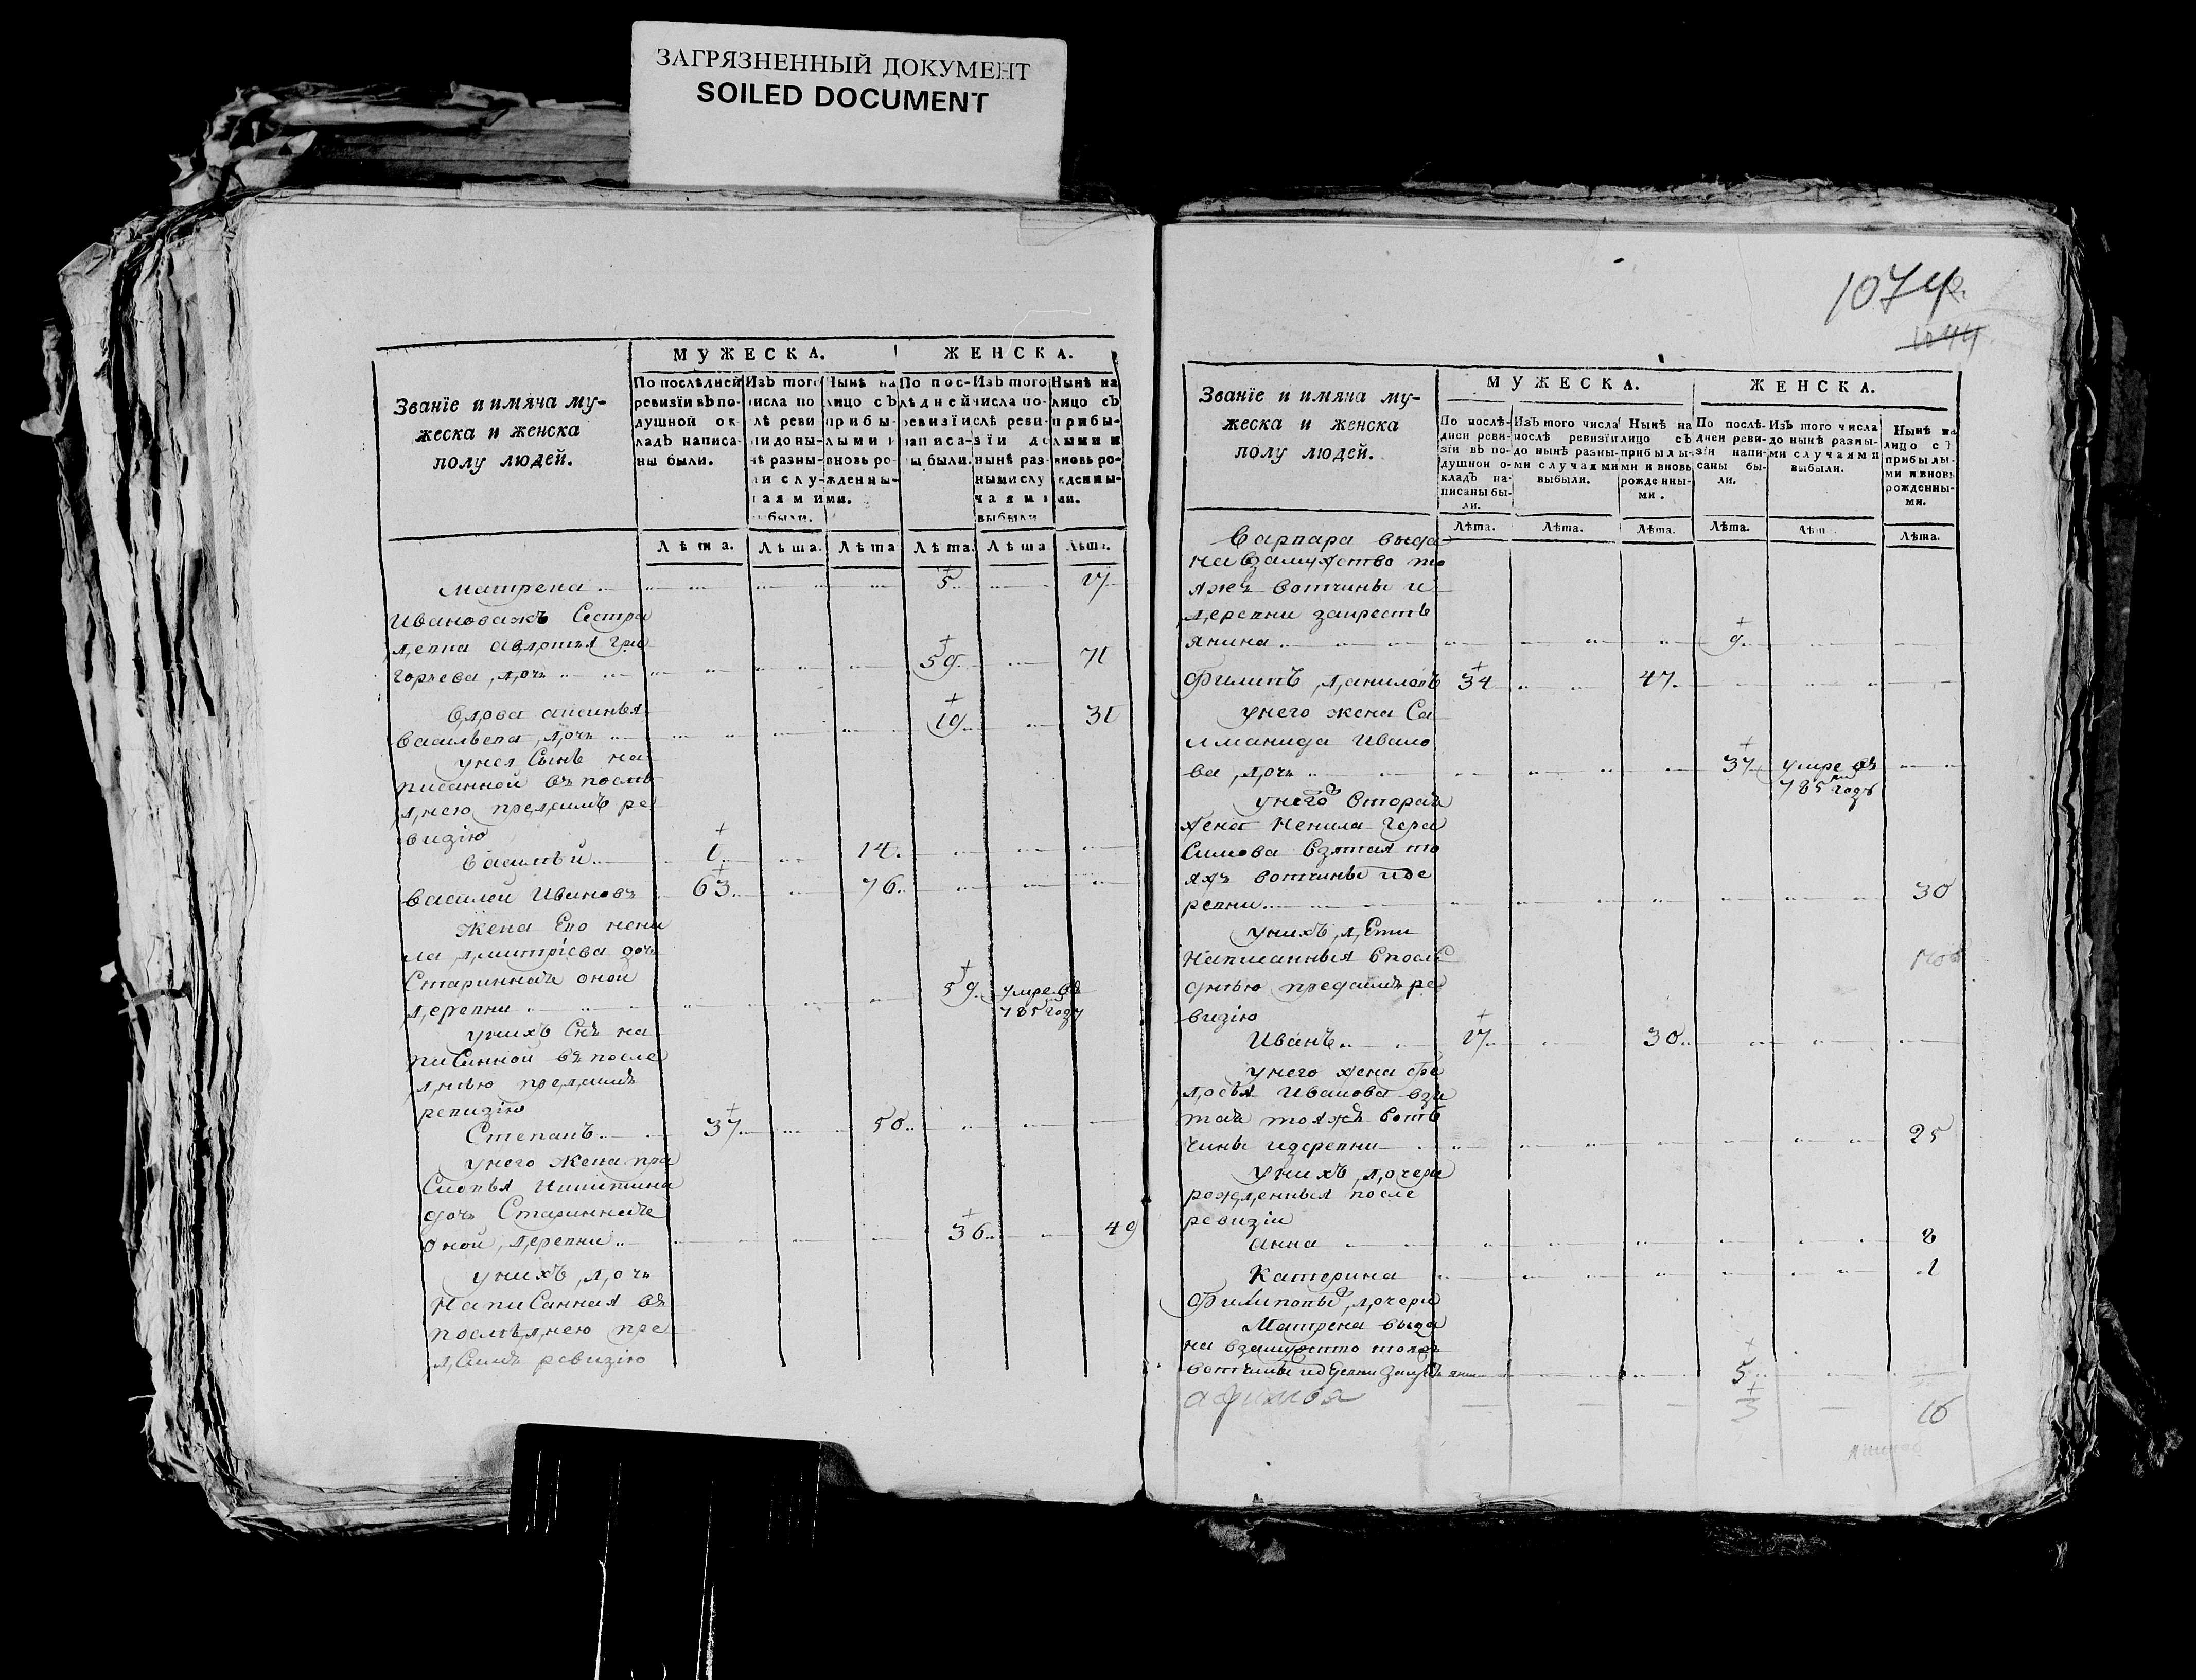 ЗАГРЯЗНЕННЫЙ ДОКУМЕНТ
SOILED DOCUMENT
МУЖЕСКА. ЖЕНСКА.
Званїе и имяна му-
жеска и женска
полу людей.
По послѣдней
ревизїи вЪ по-
душной ок-
ладЪ написа-
ны были.
ИзЪ того
числа по
лѣ реви
зїи до ны-
нѣ разны-
ми слу-
чаями
выбыли.
Нынѣ на
лицо сЪ
прибы-
лыми и
вновь ро-
жденны-
ми.
По пос-
лѣдней
ревизїи
написа-
ны были.
ИзЪ того
числа по-
слѣ реви-
зїи до
нынѣ раз-
ными слу
чаями
выбыли
Нынѣ на
лицо сЪ
прибы-
лыми и
вновь ро-
жденны-
ми.
Лѣта. Лѣта. Лѣта Лѣта. Лѣта Лѣта.
Матрена 5 17
Ивановажъ Сестра
девка авдотья Гри
горьева дочь 59 71
вдова аксинья
васильева дочь 19 31
унея Сынъ на
писанной въ послѣ
днею предъимъ ре
визїю
василѣй 1 14
василей Ивановъ 63 76
жена Ево нени
ла дмитрїева дочь
Стариннаѧ оной
деревни 59 умре въ
785 году
унихъ Снъ на
писанной въ после
днью предъимъ
ревизїю
Степанъ 37 50
унего жена пра
Сковья Никитина
дочь Стариннаѧ
оной деревни 36 49
унихъ дочь
написанная въ
послѣднею пре
дъимъ ревизїю
1074
1244
МУЖЕСКА. ЖЕНСКА.
Званїе и имяна му-
жеска и женска
полу людей.
По послѣ-
дней реви-
зїи вЪ по-
душной о-
кладЪ на-
писаны бы-
ли.
ИзЪ того числа
послѣ ревизїи
до нынѣ разны-
ми случаями
выбыли.
Нынѣ на
лицо сЪ
прибылы-
ми и вновь
рожденны-
ми.
По послѣ-
дней реви-
зїи напи-
саны бы-
ли.
ИзЪ того числа
до нынѣ разны-
ми случаями
выбыли.
Нынѣ на
лицо сЪ
прибылы-
ми и вновь
рожденны-
ми.
Лѣта. Лѣта. Лѣта. Лѣта. Лѣт Лѣта.
варвара выда
на взамужство то
яжъ вотчины и
деревни закресть
янина 9
Филипъ даниловъ 34 47
унего жена Са
ломанида Ивано
ва дочь 37 умре въ
785 годъ
унего втораѧ
жена Ненила Гера
Симова взятая то
яжъ вотчины иде
ревни 30
унихъ дѣти
написанныя впослѣ
днью предъимъ ре
визїю
Иванъ 17 30
унего жена фе
досья Иванова взѧ
таѧ тояжъ вотъ
чины идеревни 25
унихъ дочери
рожденныя после
ревизїи
анна 8
Катерина 1
Филиповы дочери
Матрена выда
на взамужство тояжъ
вотчины идеревни закресть янина 5
афимья 3 16